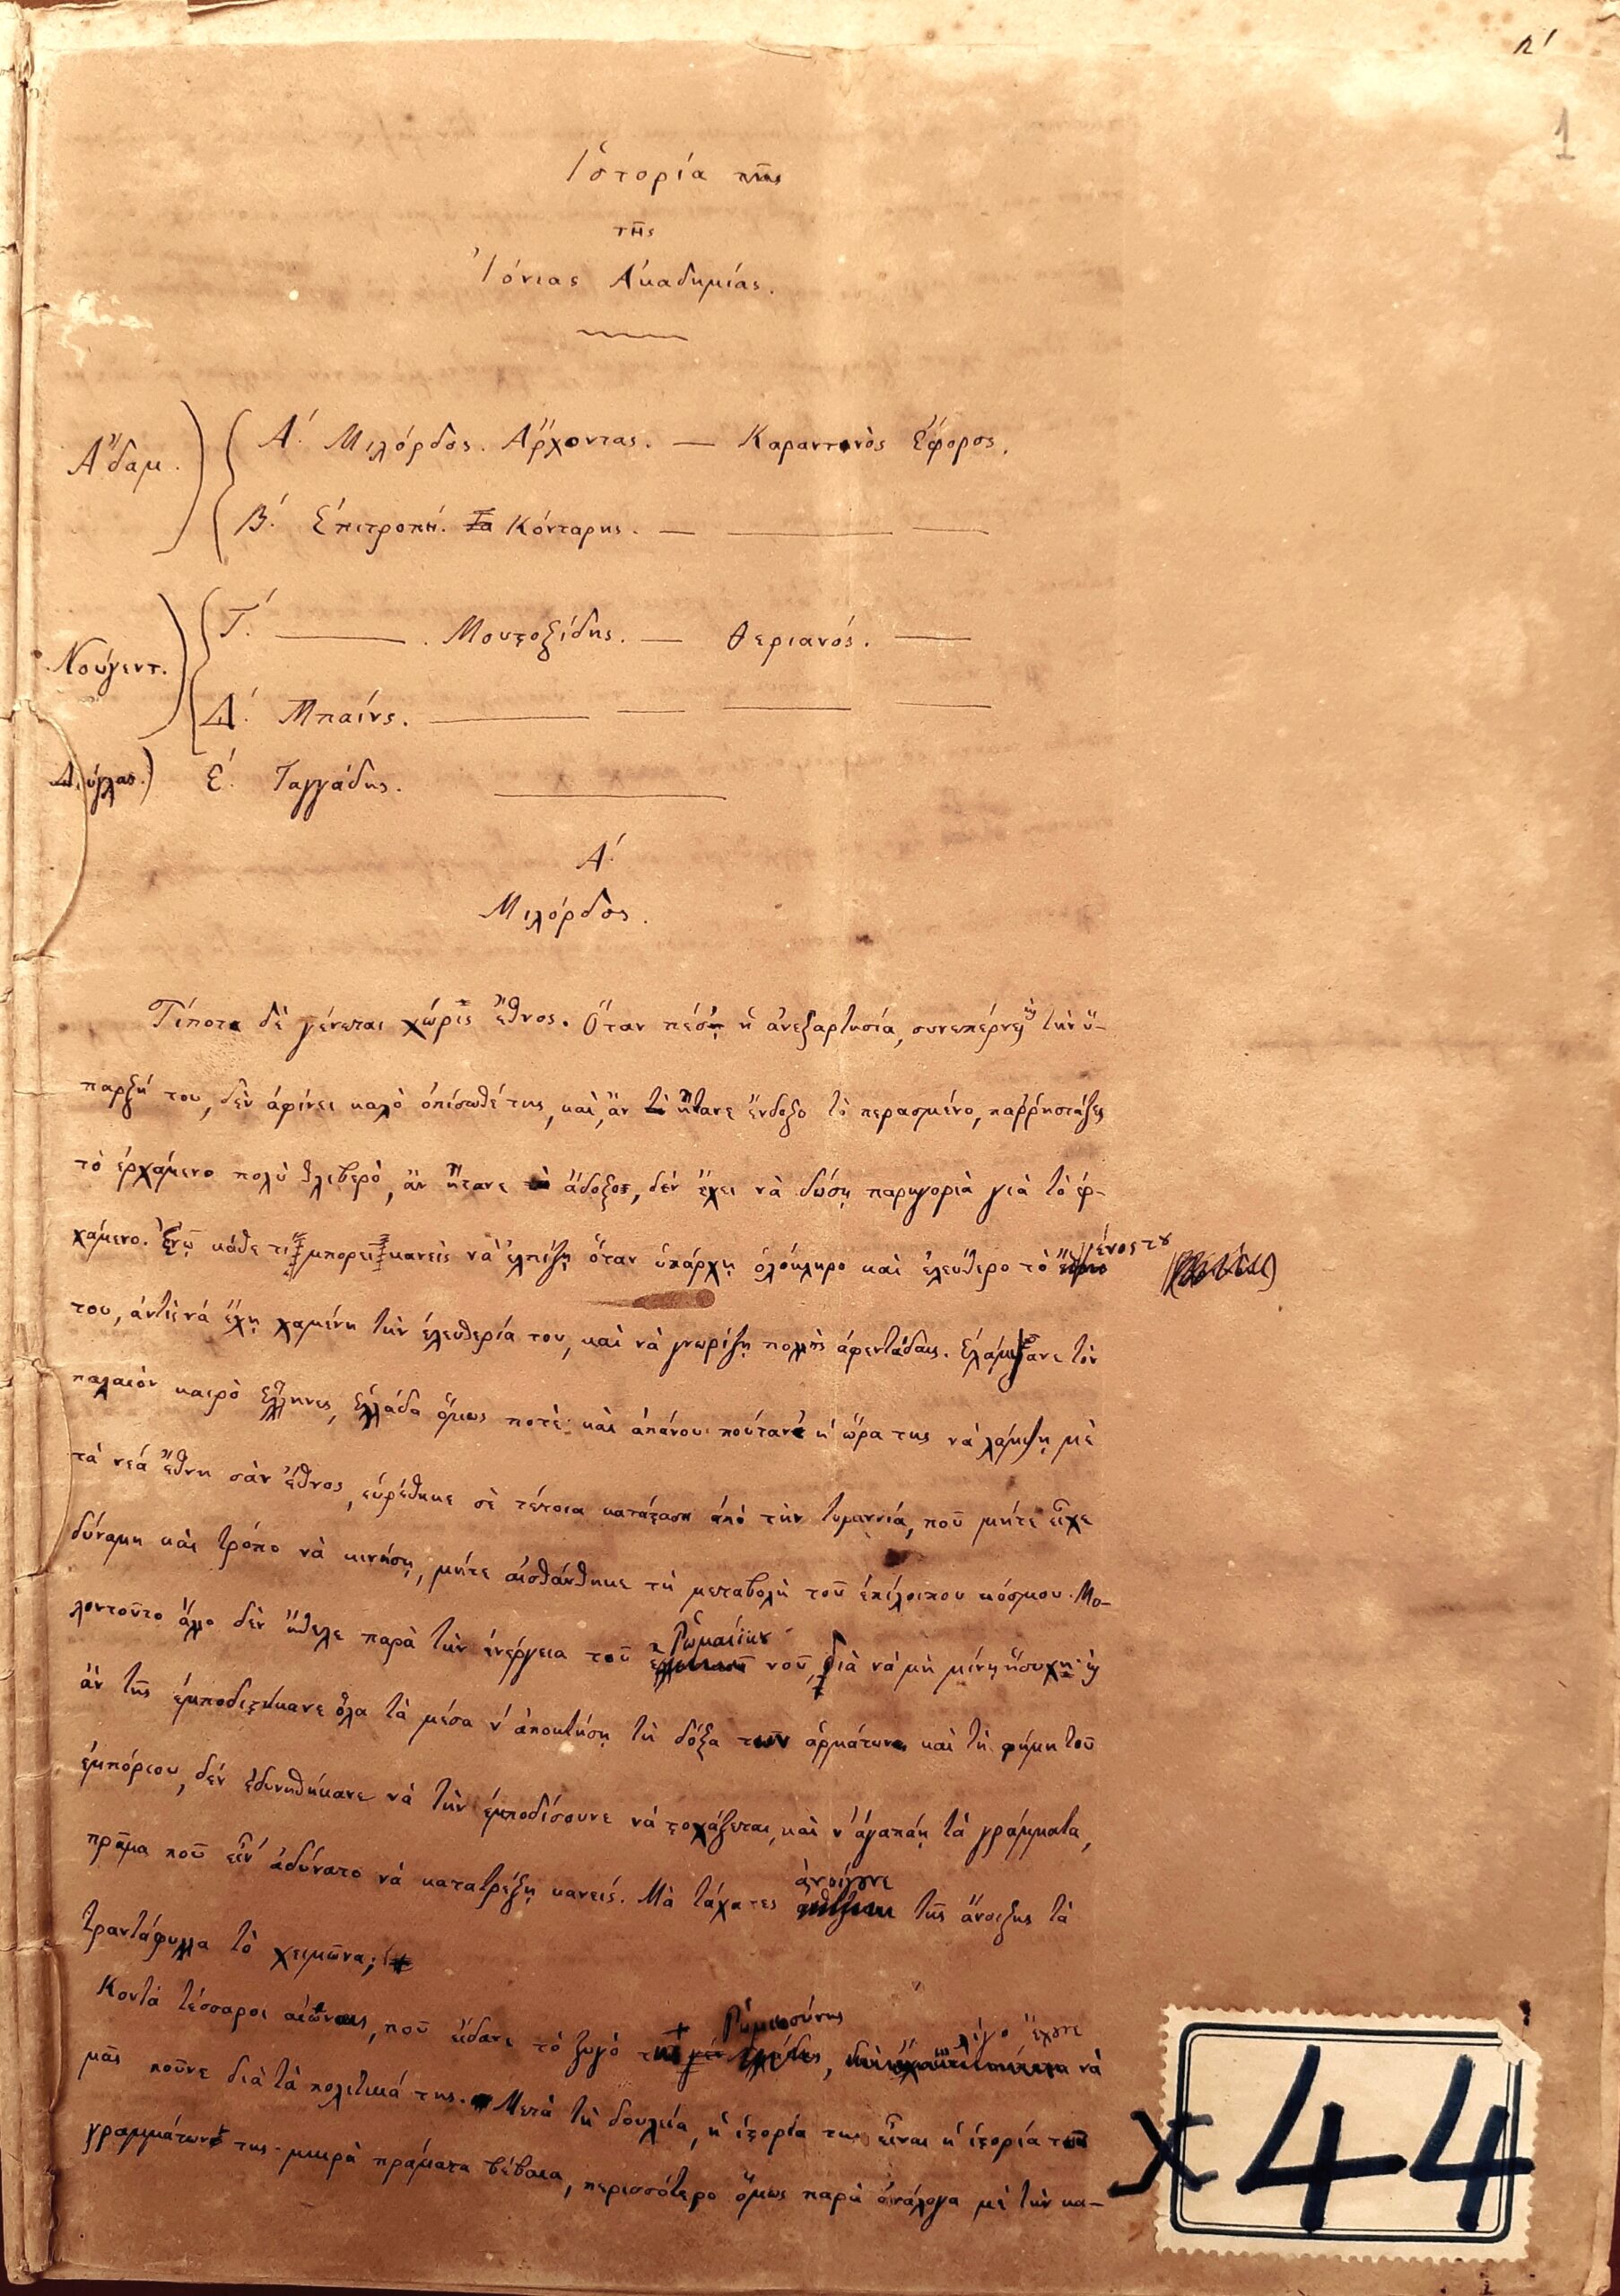 κ'
1
Ἱστορία της
τῆς
Ἰόνιας Ἀκαδημίας.
Ἄδαμ.
Α΄. Μιλόρδος. Ἄρχοντας. — Καραντινὸς Ἔφορος.
Β΄. Ἐπιτροπή. Κόνταρης. — — —
Νούγεντ.
Γ΄. — . Μουστοξίδης. — Θεριανός. —
Δ΄. Μπαίνς. — — — —
Δούγλας.
Ε΄. Ταγγάδης.
Α΄.
Μιλόρδος.
Τίποτα δὲ γένεται χωρὶς ἔθνος. Ὅταν πέσῃ ἡ ἀνεξαρτησία, συνεπέρνει τὴν ὕ-
παρξή του, δὲν ἀφίνει καλὸ ὀπίσωθέ της, καὶ, ἂν ἤτανε ἔνδοξο τὸ περασμένο, παῤῥησιάζει
τὸ ἐρχάμενο πολὺ θλιβερὸ, ἂν ἤτανε ἄδοξο, δὲν ἔχει νὰ δώσῃ παρηγοριὰ γιὰ τὸ ἐρ-
χάμενο. Ἐνῷ κάθε τι μπορεῖ κανεὶς νὰ ἐλπίζῃ ὅταν ὑπάρχῃ ὁλόκληρο καὶ ἐλεύθερο τὸ γένος του
του, ἀντὶ νὰ ἔχῃ χαμένη τὴν ἐλευθερία του, καὶ νὰ γνωρίζῃ πολλοὺς ἀφεντάδαις. Ἐλάμψανε τὸν
παλαιὸν καιρὸ Ἕλληνες, Ἑλλάδα ὅμως ποτὲ· καὶ ἀπάνου ποὔτανε ἡ ὥρα της νὰ λάμψῃ μὲ
τὰ νεά ἔθνη σὰν ἔθνος, εὑρέθηκε σὲ τέτοια κατάσταση ἀπὸ τὴν τυραννία, ποῦ μήτε εἶχε
δύναμη καὶ τρόπο νὰ κινήσῃ, μήτε αἰσθάνθηκε τὴ μεταβολὴ τοῦ ἐπίλοιπου κόσμου. Μο-
λοντοῦτο ἄλλο δὲν ἤθελε παρὰ τὴν ἐνέργεια τοῦ Ῥωμαίικου νοῦ, διὰ νὰ μὴ μένῃ ἥσυχη· κὶ
ἂν τῆς ἐμποδιστήκανε ὅλα τὰ μέσα ν' ἀποκτήσῃ τὴ δόξα τῶν ἁρμάτωνε καὶ τὴ φήμη τοῦ
ἐμπόριου, δὲν ἐδυνηθήκανε νὰ τὴν ἐμποδίσουνε νὰ στοχάζεται, καὶ ν' ἀγαπάῃ τὰ γράμματα,
πρᾶμα ποῦ εἶν' ἀδύνατο νὰ κατατρέξῃ κανείς. Μὰ τάχατες ἀνοίγουνε τῆς ἄνοιξης τὰ
τραντάφυλλα τὸ χειμῶνα;
Κοντὰ τέσσαροι αἰῶνες, ποῦ εἴδανε τὸ ζυγὸ τῆς Ῥωμιοσύνης, λίγο ἔχουνε νὰ
μᾶς ποῦνε διὰ τὰ πολιτικά της. Μετὰ τὴ δουλεία, ἡ ἱστορία της εἶναι ἡ ἱστορία τῶν
γραμμάτωνε της· μικρὰ πράματα βέβαια, περισσότερο ὅμως παρὰ ἀνάλογα μὲ τὴν κα-
x 44